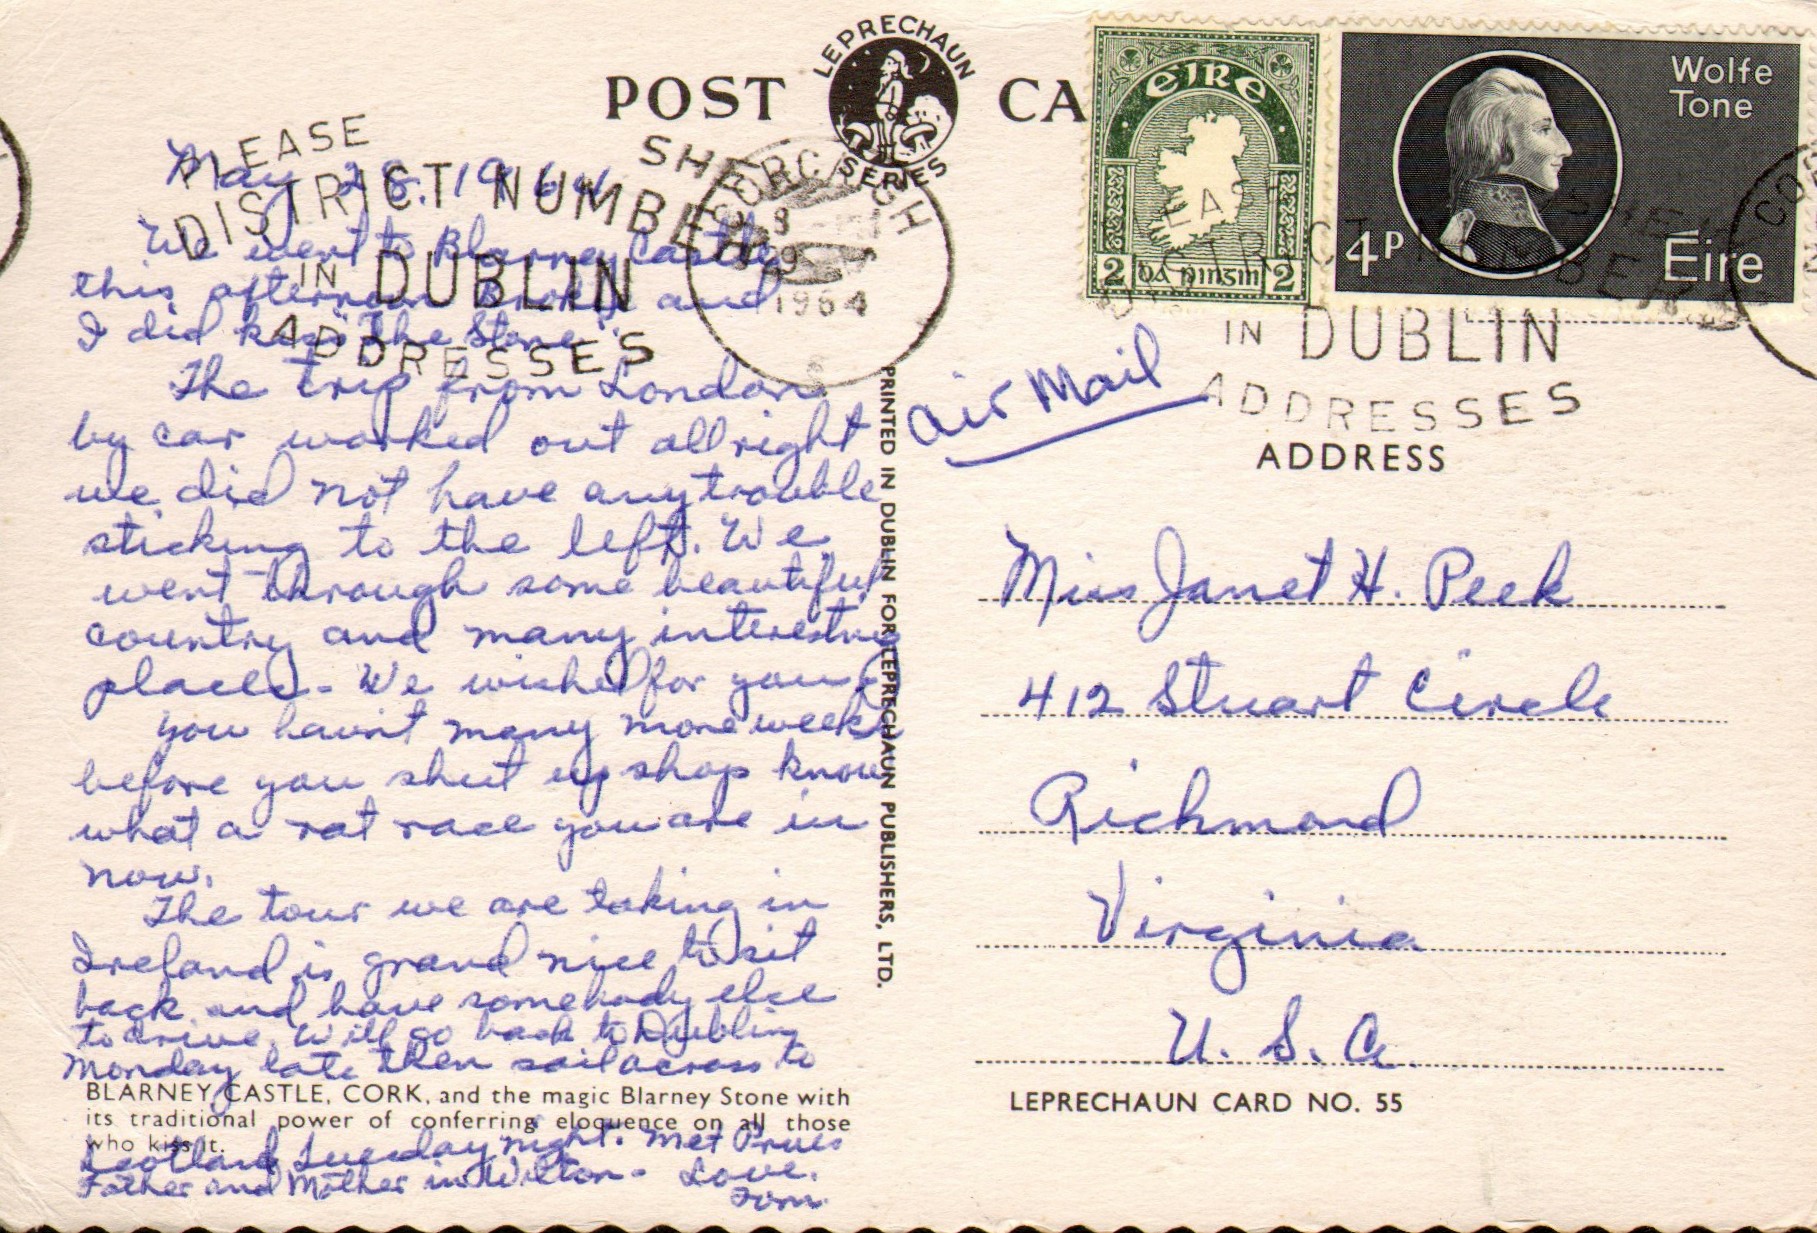 POST CA
LEPRECHAUN
SERIES
PLEASE
DISTRICT NUMBER
IN DUBLIN
ADDRESSES
1964
May 28, 1964
We went to Blarney Castle
this afternoon and
I did kiss "The Stone".
The trip from London
by car worked out allright
we did not have any trouble
sticking to the left. We
went through some beautiful
country and many interesting
places - We wished for you
you havint many more weeks
before you shut up shop know
what a rat race you are in
now.
The tour we are taking in
Ireland is grand nice to sit
back and have somebody else
to drive. Will go back to Dublin
Monday late then sail across to
Scotland Tuesday night. Met Prues
Father and Mother in Wilton - Love,
Tom
BLARNEY CASTLE, CORK, and the magic Blarney Stone with
its traditional power of conferring eloquence on all those
who kiss it.
PRINTED IN DUBLIN FOR LEPRECHAUN PUBLISHERS, LTD.
EIRE
2 DÁ PINGIN 2
Wolfe
Tone
4P Éire
IN DUBLIN
ADDRESSES
air Mail
ADDRESS
Miss Janet H. Peek
412 Stuart Circle
Richmond
Virginia
U. S. A.
LEPRECHAUN CARD NO. 55